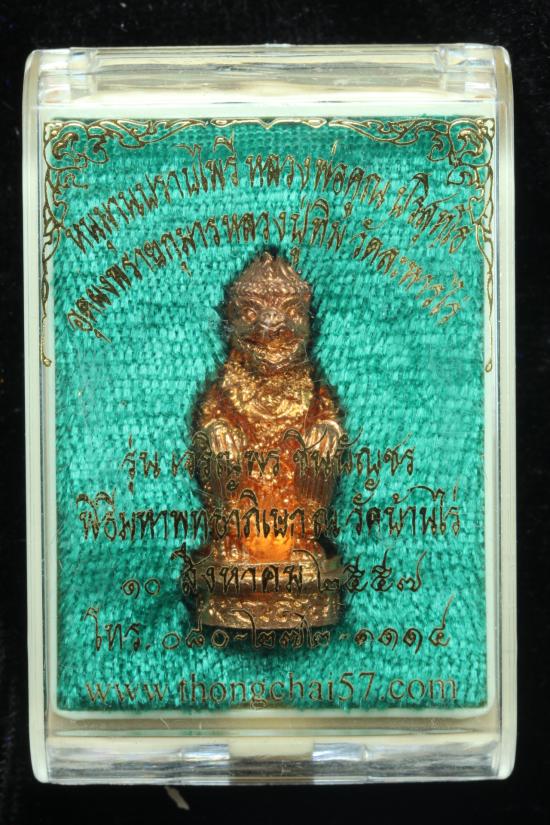 หนุมานพรานไพรี หลวงพ่อคูณ ปริสุทฺโธ
อุดผงพรายกุมารหลวงปู่ทิม วัดละหารไร่
รุ่น เจริญพร ชินบัญชร
พิธีมหาพุทธาภิเษก ณ วัดบ้านไร่
๑๐ สิงหาคม ๒๕๕๗
โทร. ๐๘๐-๒๗๒-๑๑๑๔
www.thongchai57.com